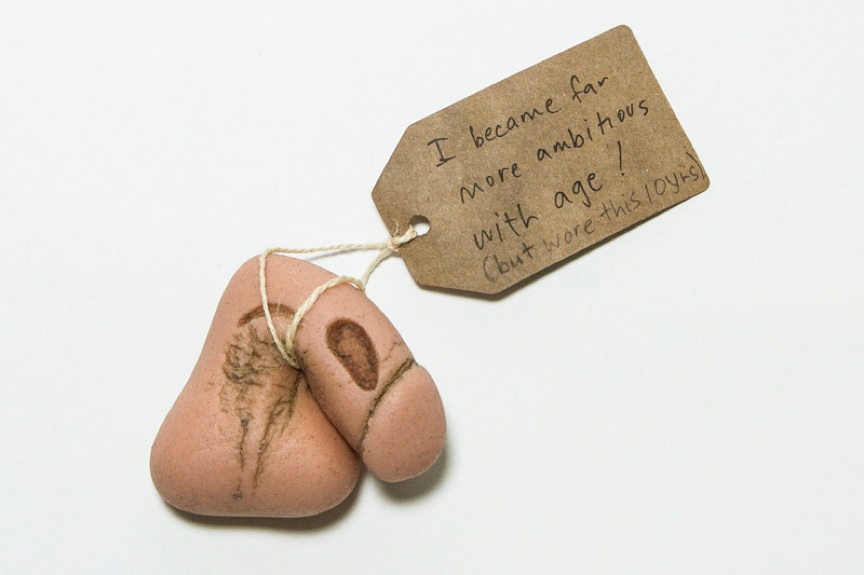 I became far
more ambitious
with age!
(but wore this 10yrs)